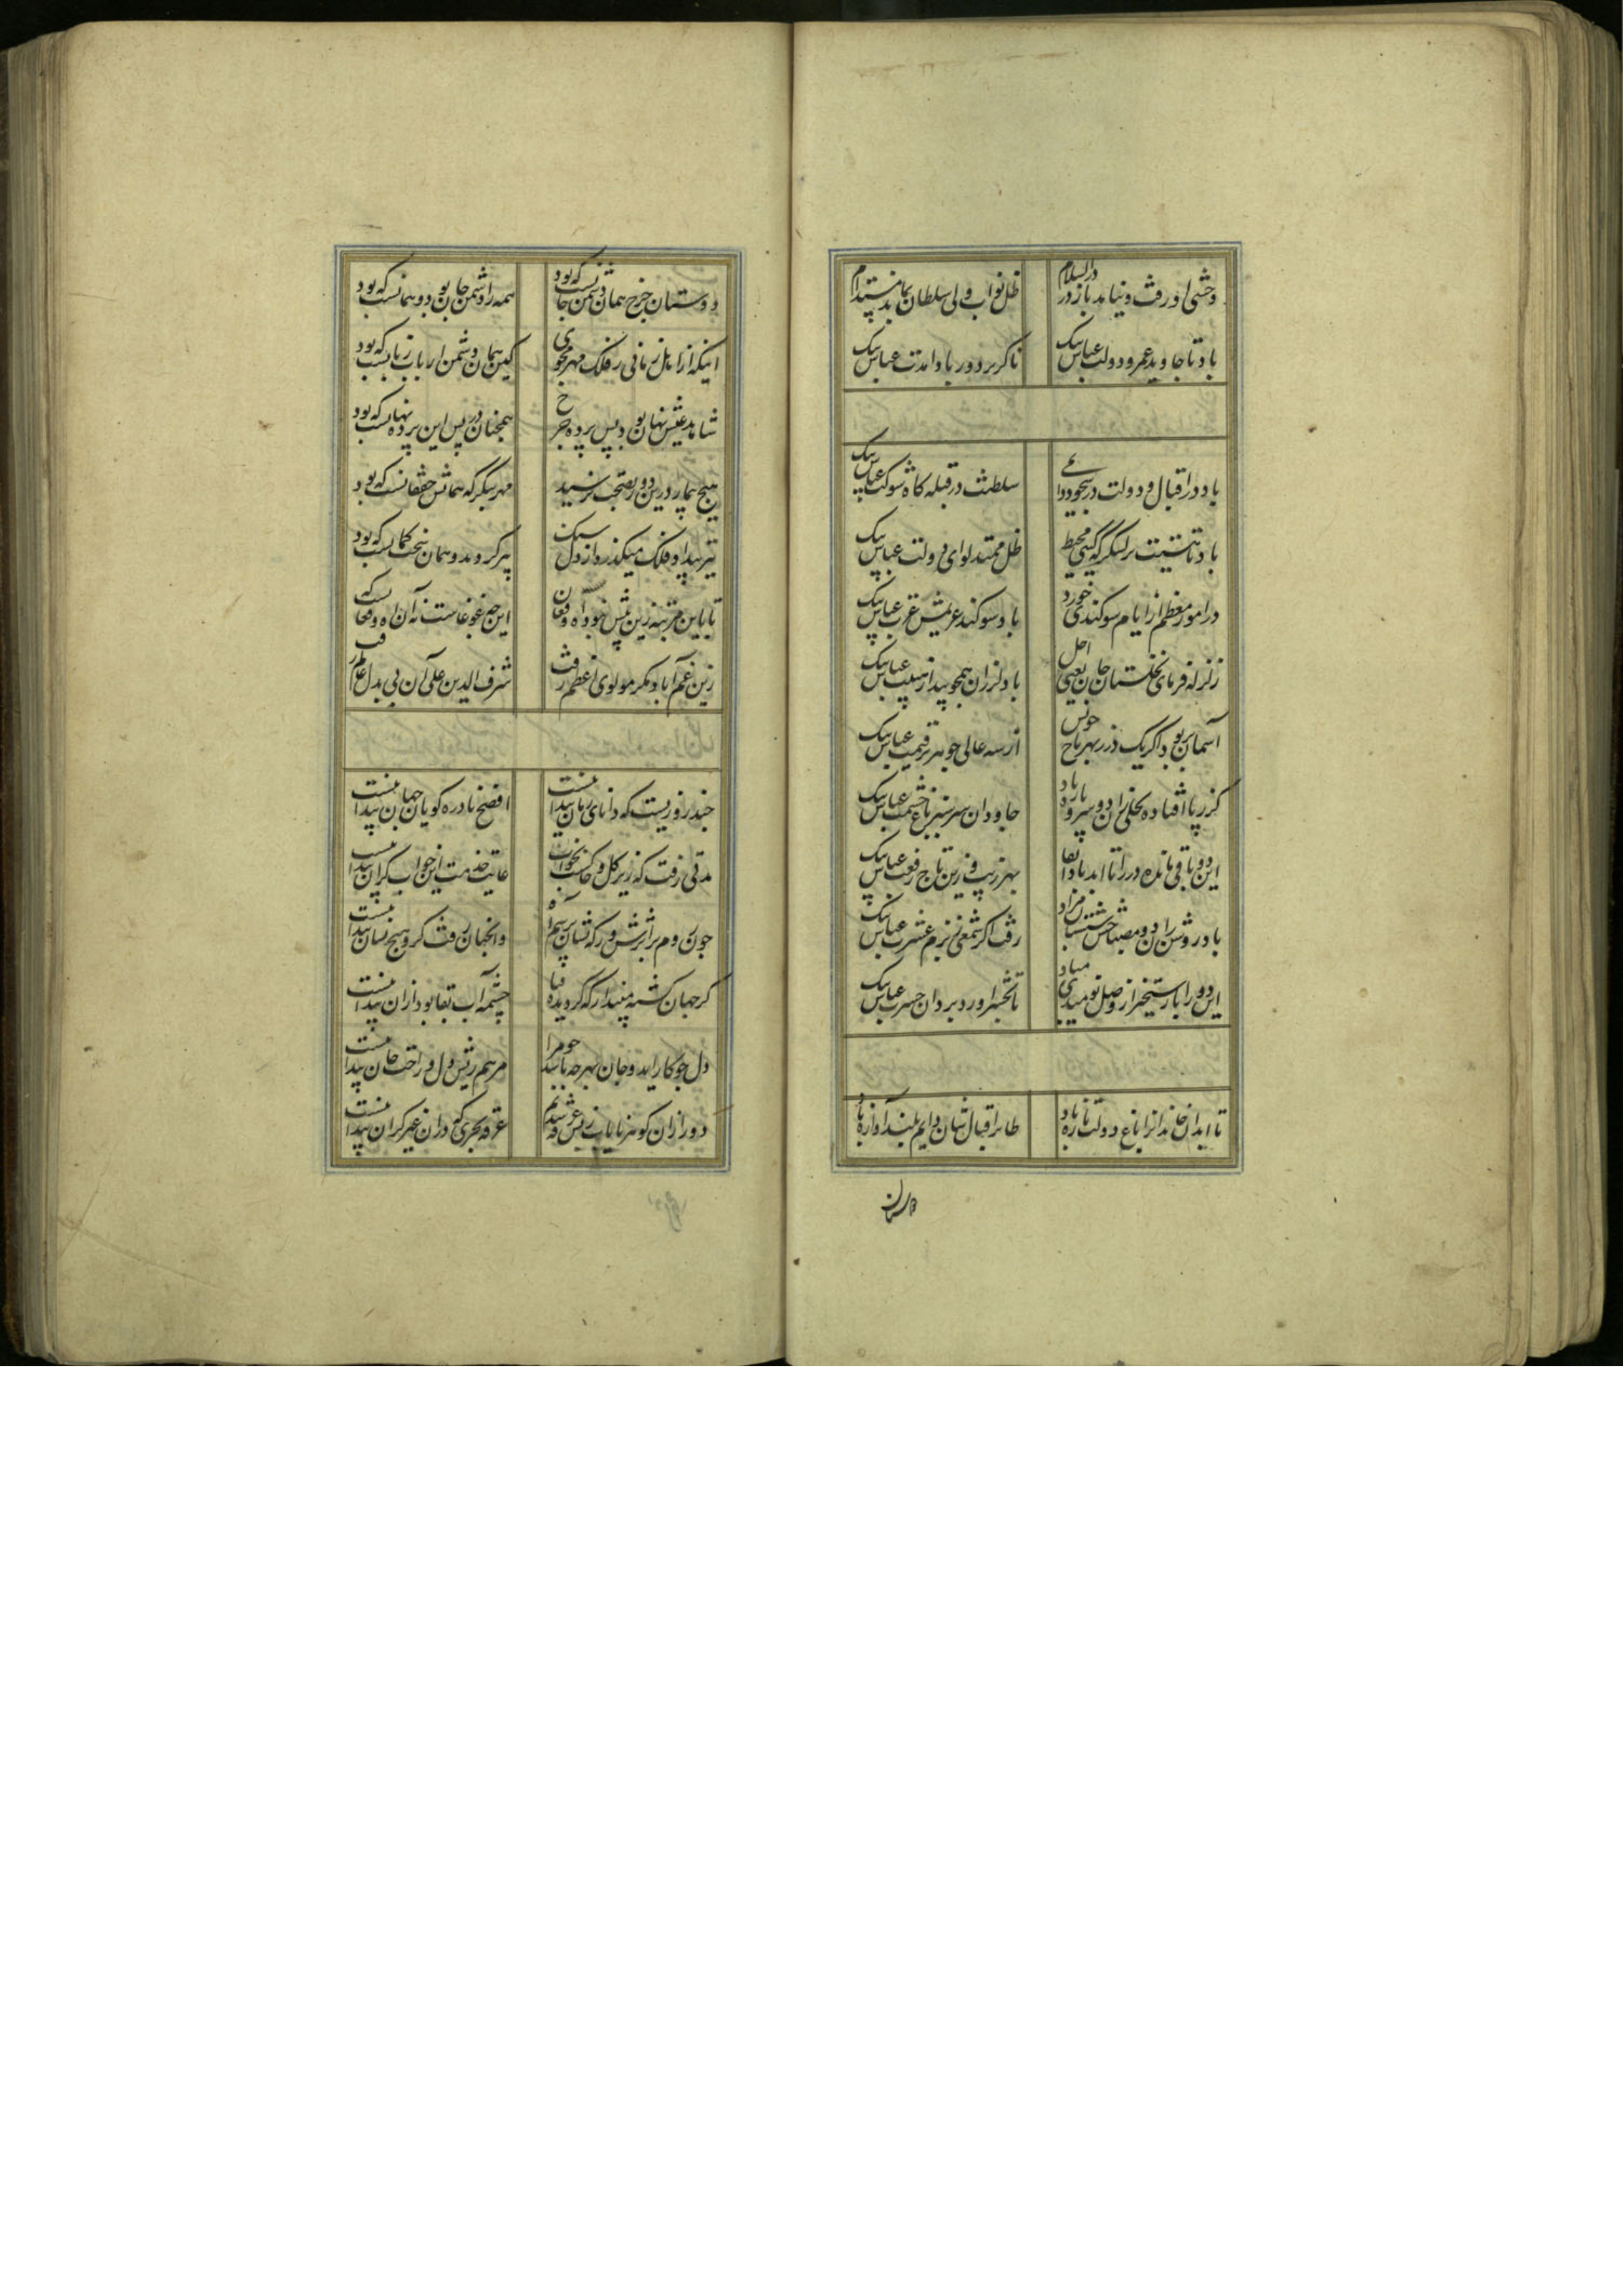 وحشی او رفت و نیاید باز در دارالسلام
ظل نواب ولی سلطان بماند مستدام
باد تا جاوید عمر و دولت عباس بیک
ناگزیر دور بادا مدت عباس بیک
باد در اقبال و دولت در سجود دوام
سلطنت در قبله گاه شوکت عباس بیک
باد تا هستیت بر لشکر گه گیتی محیط
ظل ممتد لوای دولت عباس بیک
در امور معظم ار ایام سوگندی خورد
باد سوگند عظیمش عزت عباس بیک
زلزله فرمای نخلستان جان یعنی اجل
باد لرزان همچو بید از هیبت عباس بیک
آسمان پر بود اگر یک در ز بهر تاج خویش
از سه عالی جوهر پر قیمت عباس بیک
گر ز پا افتاده نخلی زان دو سرو باد
جاودان سرسبز باغ حشمت عباس بیک
این دو باقی مانده در را تا ابد بادا بقا
بهر زیب و زین تاج رفعت عباس بیک
باد روشن زان دو مصباح شبستان مراد
رفت اگر شمعی ز بزم عشرت عباس بیک
این دو را با رستخیز از وصل نومیدی مباد
تا بحشر ار ورد برد آن حسرت عباس بیک
تا ابد آن خاندانرا باغ دولت تازه باد
طائر اقبال شان دایم بلند آوازه باد
دوستان چرخ همان دشمن جانست که بود
همه را دشمن جان بود و همانست که بود
اینکه از اهل زمانی ز فلک مهر مجوی
کین همان دشمن ارباب زبانست که بود
شاهد عیش نهان بود پس پرده چرخ
همچنان در پس این پرده نهانست که بود
هیچ بیمار درین دور بصحت نرسید
مهر بنگر که همانش خفقانست که بود
تیر بیداد فلک میگذرد از دل سنگ
پیر گردید و همان سخت کمانست که بود
تا باین مرتبه زین پیش نبود آه و فغان
این چه غوغاست نه آن آه و فغانست که بود
زین غم آباد مگر مولوی اعظم رفت
شرف الدین علی آن بی بدل عالم رفت
چند روزیست که دانای زمان پیدا نیست
افصح نادره گویان جهان پیدا نیست
مدتی رفت که زیر گل و خاکست بخواب
غایت چیست ازین خواب گران پیدا نیست
چون روم بر اثرش وز که نشان پرسم آه
وانچنان رفت کزو هیچ نشان پیدا نیست
گر جهان گشته مپندار که گردیده فنا
چشمه آب بقا بود از آن پیدا نیست
دل چو کار آید و جان بهر چه باشد چو مرا
مرهم ریش دل و راحت جان پیدا نیست
دور از آن گوهر نایاب ز بس غرقه شدیم
غرقه بحری که در آن غیر کران پیدا نیست
داستان